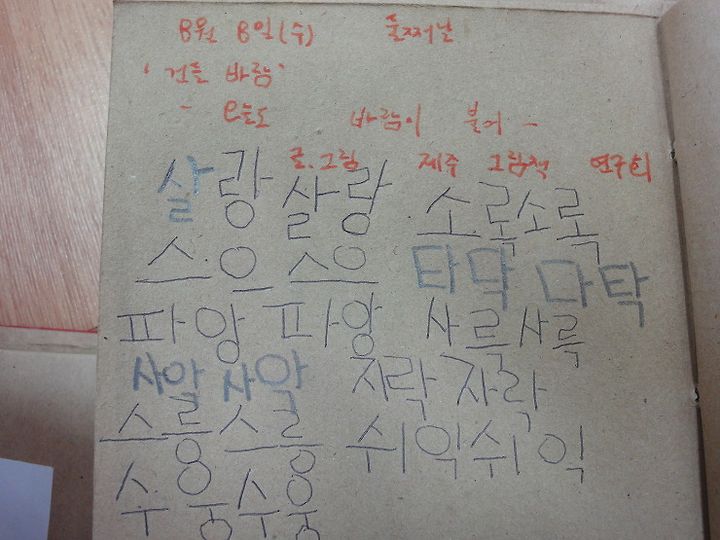 8월 8일(수) 둘째날
'건들 바람'
- 오늘도 바람이 불어 -
글.그림 제주 그림책 연구회
살랑 살랑 소록소록
스으 스으 타닥 다탁
파앙 파앙 사륵사륵
사악 사악 자락 자락
스릉 스릉 쉬익쉬익
수웅수웅